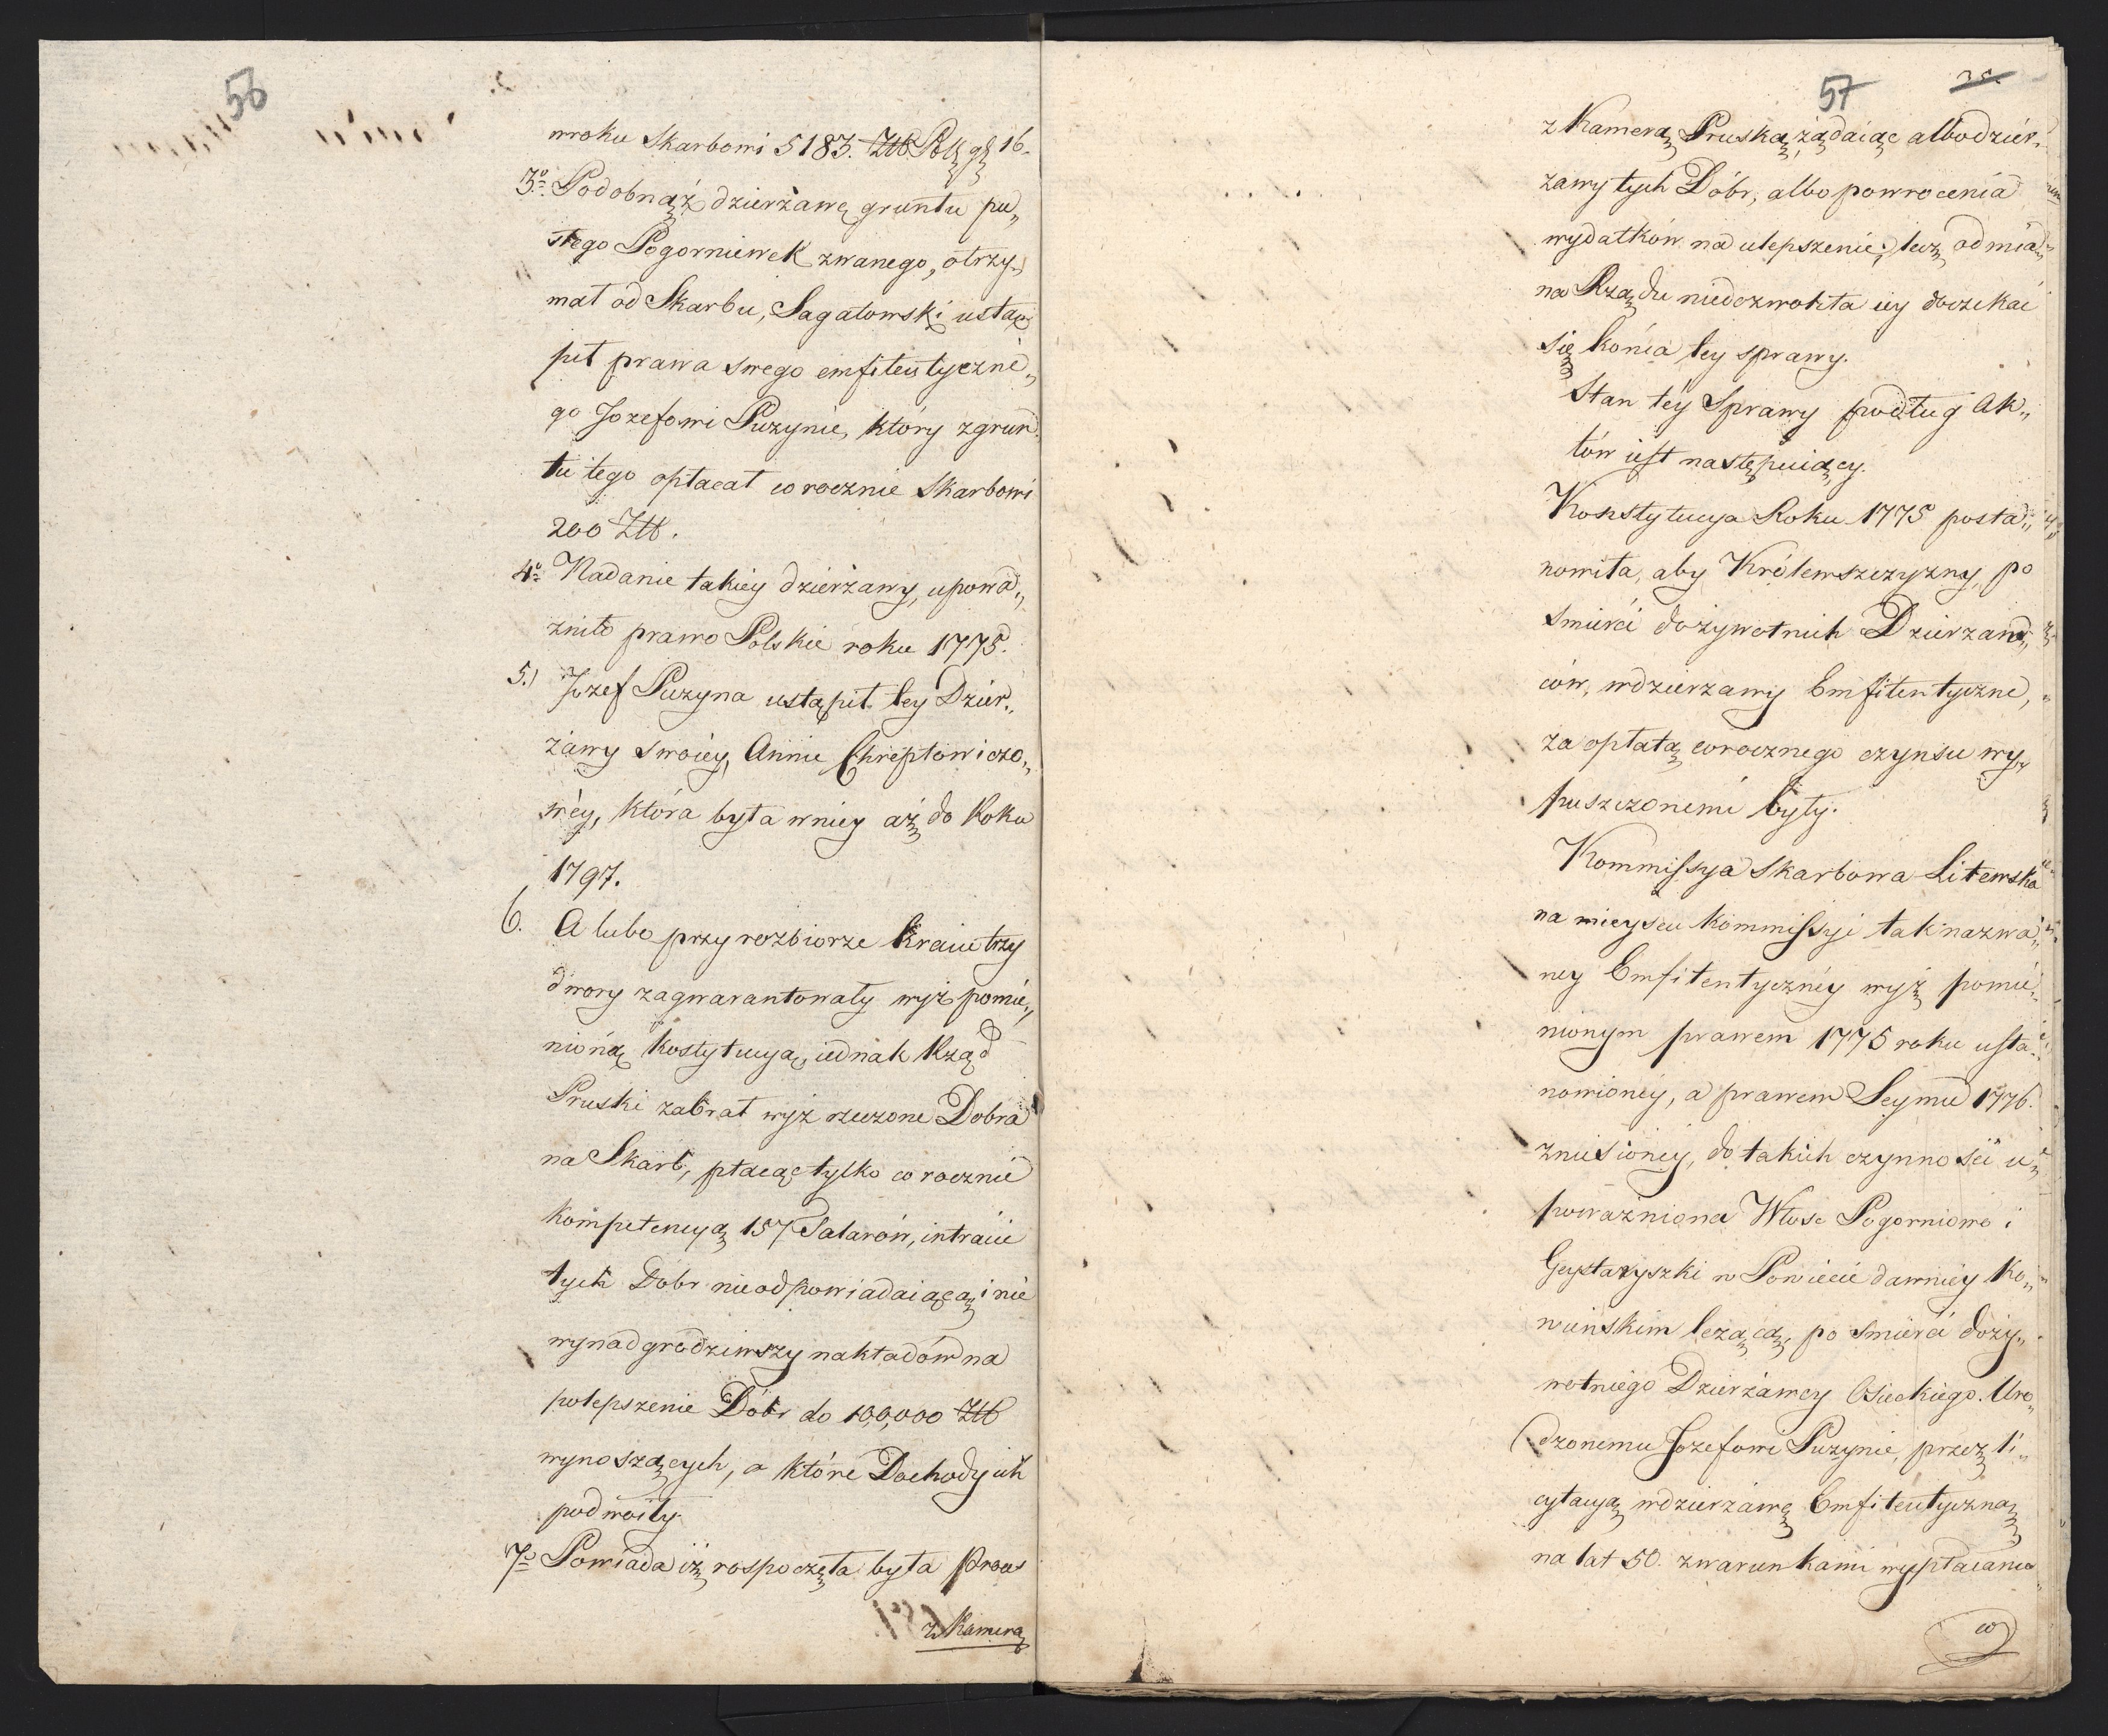 56
wroku Skarbowi 5183. Złł Polł gł 16.
3º Podobnąż dzierżawę gruntu pu„
stego Pogorniewek zwanego, otrzy„
mał od Skarbu, Sagatowski ustą„
pił prawa swego emfiteutyczne„
go Jozefowi Puzynie, który zgrun„
tu tego opłacał corocznie Skarbowi
200 Złł.
4º Nadanie takiey dzierżawy, upowa„
żniło prawo Polskie roku 1775.
5.) Jozef Puzyna ustąpił tey Dzier„
żawy swoiey, Annie Chreptowiczo„
wéy, która była wniey aż do Roku
1797.
6. A lubo przy rozbiorze Kraiu trzy
dwory zagwarantowały wyż pomie„
nioną kostytucyą, iednak Rząd
Pruski zabrał wyż rzeczone Dobra
na Skarb, płacąc tylko corocznie
kompetencyą 157 Talarów, intracie
tych Dóbr nieodpowiadaiącą, i nie
wynadgrodziwszy nakładów na
polepszenie Dóbr do 100,000 Złł
wynoszących, a które Dochody ich
podwoiły.
7º Powiada iż rospoczęta była Proces
z Kamerą
57
z Kamerą Pruską, żądaiąc albo dzier„
zawy tych Dóbr, albo powrocenia
wydatków na ulepszenie; lecz odmia„
na Rządu niedozwoliła iey doczekać
się końca tey sprawy.
Stan téy Sprawy podług Ak„
tów iest następuiący.
Konstytucya Roku 1775 posta„
nowiła, aby Królewszczyzny, po
smierci dożywotnich Dzierzaw„
ców, wdzierzawy Emfiteutyczne,
za opłatą corocznego czynszu wy„
puszczonemi były.
Kommissya Skarbowa Litewska
na mieyscu kommissyi tak nazwa„
ney Emfiteutyczney wyż pomie„
nionym prawem 1775 roku usta„
nowioney, a prawem Seymu 1776.
zniesioney, do takich czynności u„
poważniona Włość Pogorniowo i
Geystaryszki w Powiecie dawniey Ko„
wieńskim leżącą, po smierci doży„
wotniego Dzierżawcy Osieckiego. Uro„
dzonemu Jozefowi Puzynie, przez li„
cytacyą wdzierżawę Emfiteutyczną
na lat 50. zwarunkami wypłacania
co